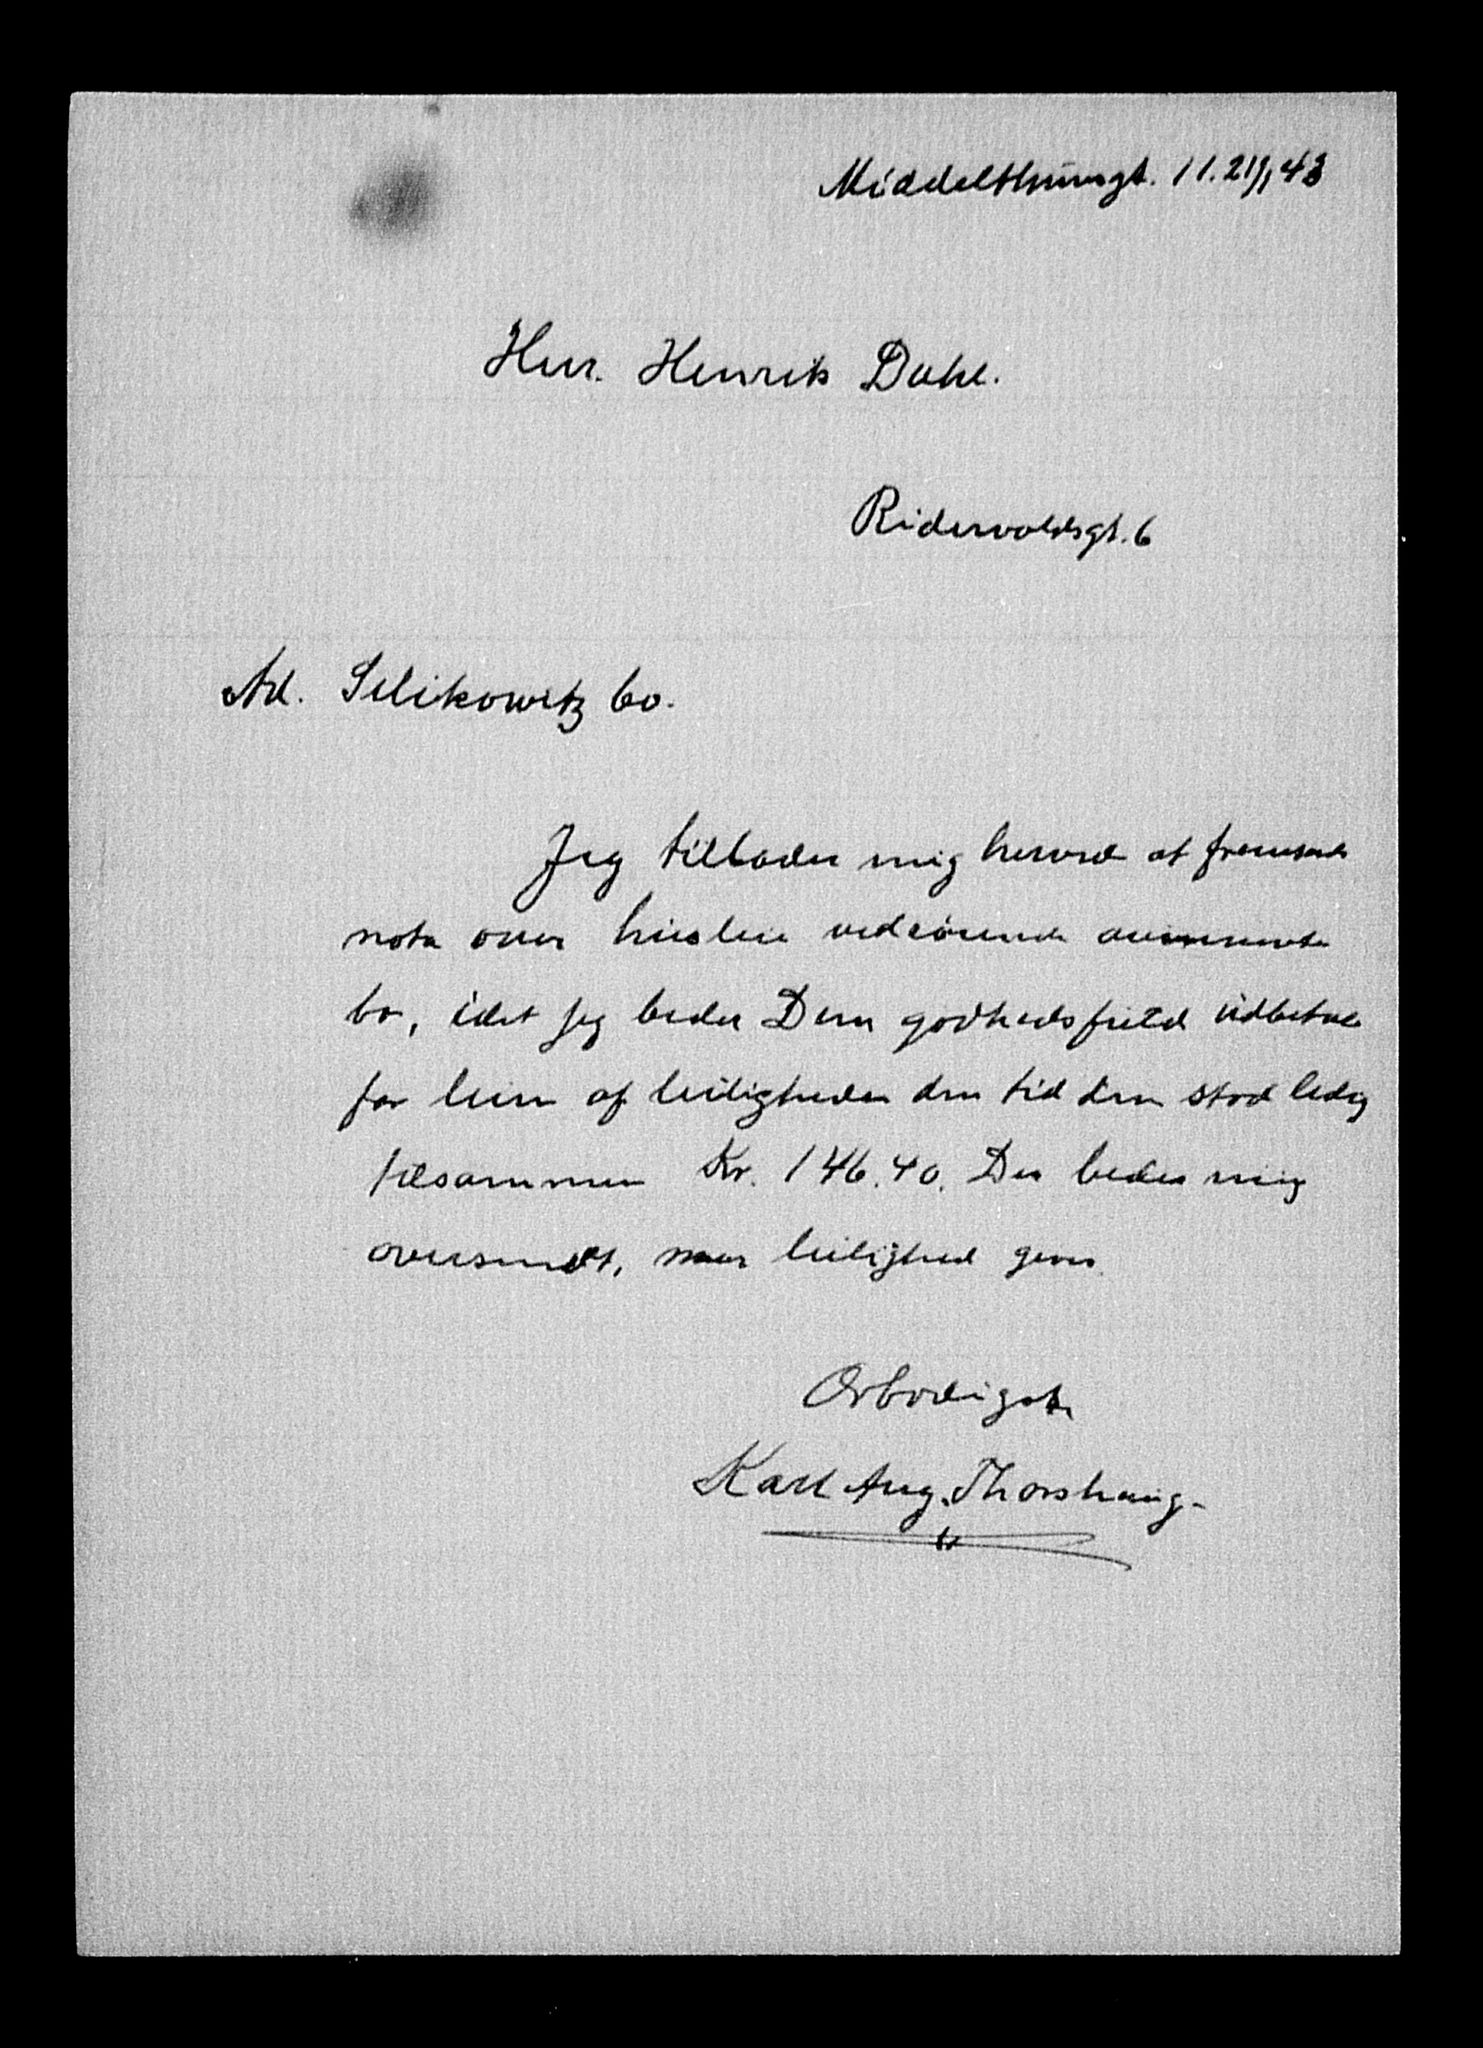 Middelthunsgt. 11. 21/1 43
Herr. Henrik Dahl.
Ridervoldsgt. 6
Ad. Selikowitz bo.
Jeg tillader mig herved at fremsende
nota over husleie vedrørende ovennevnte
bo, idet jeg beder Dem godhedsfuld udbetale
for leien af leiligheden den tid den stod ledig
tilsammen Kr. 146.40. Der bedes mig
oversendt, naar leilighed gives
Ørbødigst
Karl Aug. Thorshaug.